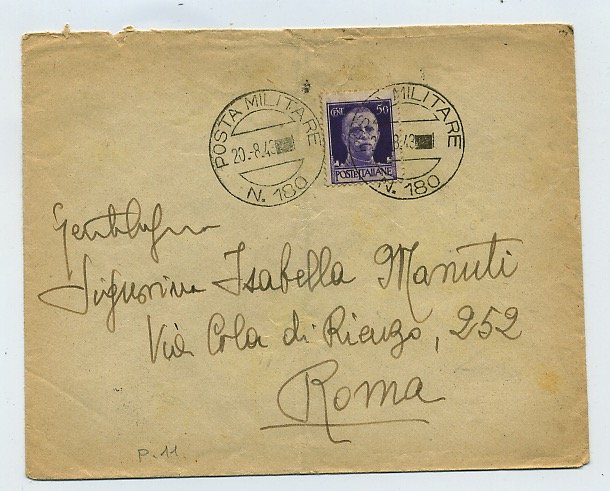 POSTA MILITARE
20.-8.43
N. 180
CENT 50
POSTE ITALIANE
POSTA MILITARE
8.43
N. 180
Gentilis͏sima
Signorina Isabella Manuti
Via Cola di Rienzo, 252
Roma
P. 11.